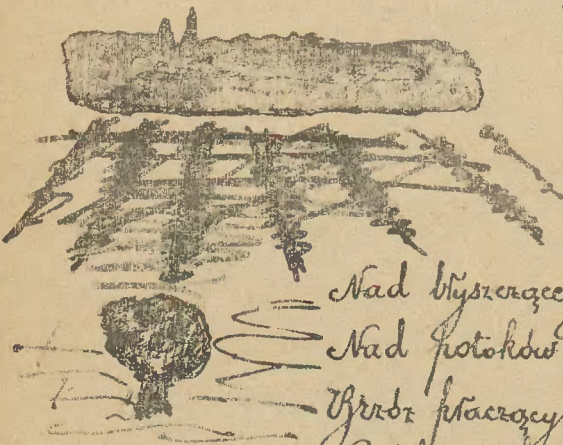 Nad błyszczące
Nad potoków
Brzóz płaczący